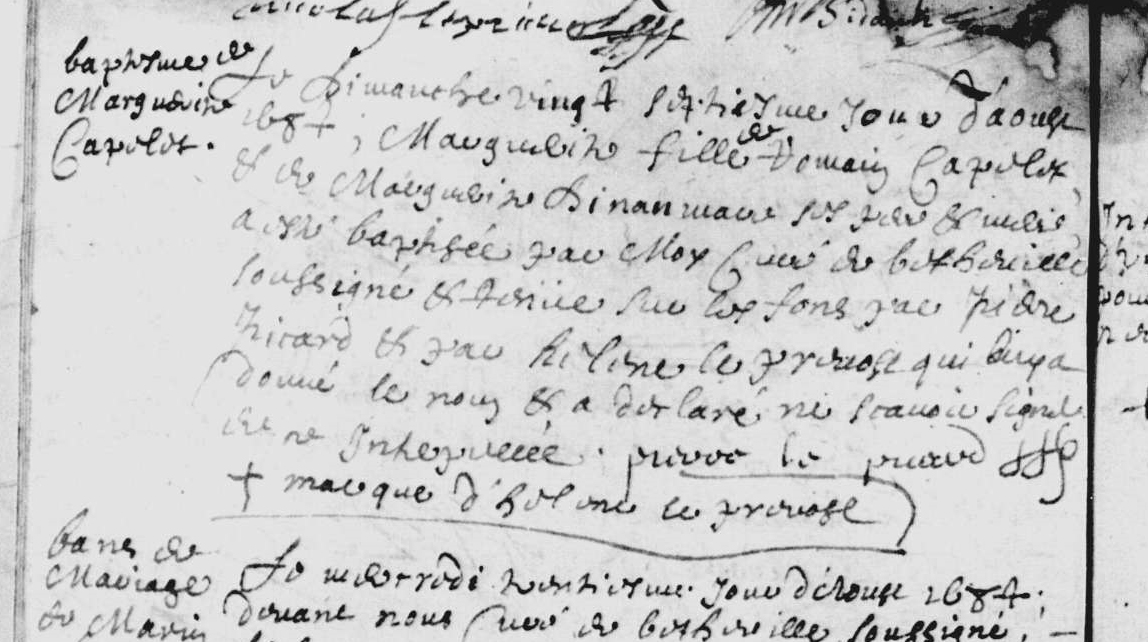 baptisme de
Marguerite
Capelet.
Le Dimanche vingt septiesme Jour d'aoust
1684, Marguerite fille de Romain Capelet,
& de Marguerite Dinanmare ses pere & mere,
a esté baptisée par Moy Curé de betheville
soussigné & tenue sur les fons par Pierre
Picard & par helene le prevost qui luy a
donné le nom & a declaré ne scavoir signer
de ce Interpellée. pierre le picard
+ marque d'helene le prevost
bans de
Mariage
de Marin
Le mercredi trentiesme Jour d'aoust 1684,
devant nous Curé de betheville soussigné